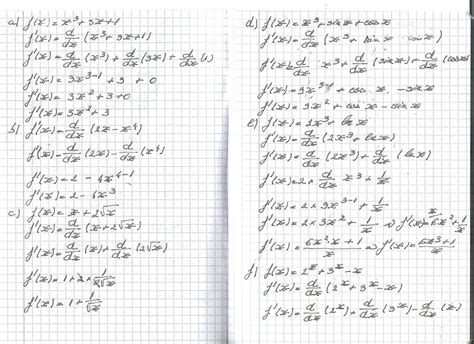 a) f(x) = x³ + 3x + 1
f'(x) = d/dx (x³ + 3x + 1)
f'(x) = d/dx (x³) + d/dx (3x) + d/dx (1)
f'(x) = 3x³⁻¹ + 3 + 0
f'(x) = 3x² + 3 + 0
f'(x) = 3x² + 3
b) f'(x) = d/dx (2x - x⁴)
f'(x) = d/dx (2x) - d/dx (x⁴)
f'(x) = 2 - 4x⁴⁻¹
f'(x) = 2 - 4x³
c) f(x) = x + 2√x
f'(x) = d/dx (x + 2√x)
f'(x) = d/dx (x) + d/dx (2√x)
f'(x) = 1 + 2 × 1/2√x
f'(x) = 1 + 1/√x
d) f(x) = x³ + sin x + cos x
f'(x) = d/dx (x³ + sin x cos x)
f'(x) = d/dx x³ + d/dx (sin x) + d/dx (cos x)
f'(x) = 3x³⁻¹ + cos x, - sin x
f'(x) = 3x² + cos x - sin x
e) f(x) = 2x³ + ln x
f'(x) = d/dx (2x³ + ln x)
f'(x) = d/dx (2x³) + d/dx (ln x)
f'(x) = 2 × d/dx x³ + 1/x
f'(x) = 2 × 3x³⁻¹ + 1/x
f'(x) = 2 × 3x² + 1/x => f'(x) = 6x² + 1/x
f'(x) = 6x² x + 1/x => f'(x) = 6x³ + 1/x
f) f(x) = 2ˣ + 3ˣ - x
f'(x) = d/dx (2ˣ + 3ˣ - x)
f'(x) = d/dx (2ˣ) + d/dx (3ˣ) - d/dx (x)